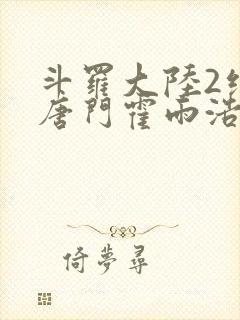 斗羅大陸2
唐門霍雨浩
倚夢尋